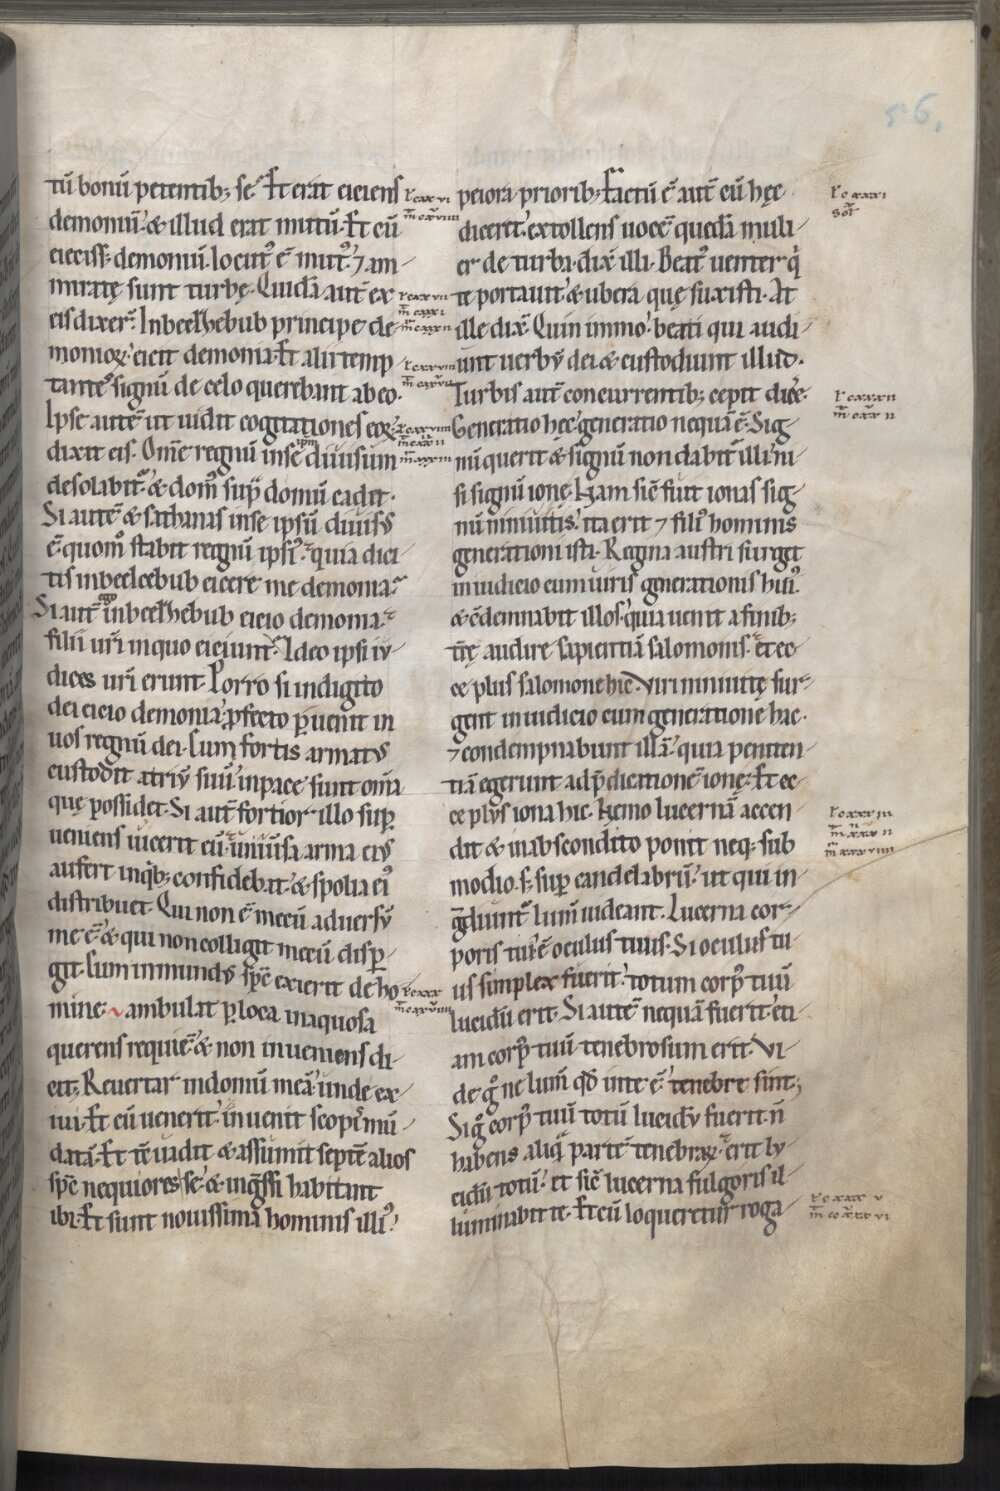 56.
tū bonū petentib; se. Et erat eiciens
demoniū. & illud erat mutū. Et cū
eieciss& demoniū. locut᾽ ē mut᾽. ⁊ am-
miratę sunt turbę. Quidā aut̄ ex
eis dixer̄. In beelzhebub principe de-
monioꝝ eicit demonia. Et alii temp-
tantes signū de celo querebant ab eo.
Ipse autē ut uidit cogitationes eoꝝ.
dixit eis. Om̄e regnū in se ipm diuisum
desolabit᾽. & dom᾽ supra domū cadit.
Si autē & sathanas in se ipsū diuisus
ē. quom̊ stabit regnū ipsi᾽. quia dici-
tis in beelcebub eicere me demonia.
Si aut̄ ego in beelzhebub eicio demonia.
filii ur̄i in quo eiciunt. Ideo ipsi iu-
dices ur̄i erunt. Porro si in digito
dei eicio demonia. ꝓfecto ꝑuenit in
uos regnū dei. Cum fortis armatus
custodit atriū suū. in pace sunt om̄a
quę possidet. Si aut̄ fortior illo suꝑ-
ueniens uicerit eū. uniuersa arma eius
aufert in qb; confidebat. & spolia ei᾽
distribuet. Qui non ē mecū aduersū
me ē. & qui non colligit mecū disꝑ-
git. Cum immundus sp̄c exierit de ho-
mine. ambulat ꝑ loca inaquosa
querens requiē. & non inueniens di-
cit; Reuertar in domū meā. unde ex-
iui. Et cū uenerit. inuenit scopis mū-
datā. Et tē uadit & assumit septē alios
sp̄c nequiores se. & ingressi habitant
ibi. Et sunt nouissima hominis illi᾽.
peiora priorib; Factū ē aut̄ cū hęc
dicer&. extollens uocē quedā muli-
er de turba. dix̄ illi. Beat᾽ uenter q
te portauit. & ubera quę suxisti. At
ille dix̄. Quin immo. beati qui audi-
unt uerbū dei & custodiunt illud.
Turbis aut̄ concurrentib; cepit dicere.
Generatio hęc generatio nequā ē. Sig-
nū querit & signū non dabit᾽ illi. ni-
si signū ionę. Nam sic̄ fuit ionas sig-
nū niniuitis. ita erit ⁊ fili᾽ hominis
generationi isti. Regina austri surget
in iudicio cum uiris generationis hui᾽.
& cōdemnabit illos. quia uenit a finib;
tr̄ę audire sapientiā salomonis. et ec-
ce plus salomone hic. Viri niniuitę sur-
gent in iudicio cum generatione hac.
⁊ condempnabunt illā. quia peniten-
tiā egerunt ad p̄dicationē ionę. Et ec-
ce plus iona hic. Nemo lucernā accen-
dit & in abscondito ponit neq; sub
modio. s; suꝑ candelabrū. ut qui in-
grediunt᾽ lum̄ uideant. Lucerna cor-
poris tui ē oculus tuus. Si oculus tu-
us simplex fuerit. totum corp᾽ tuū
lucidū erit. Si autē nequā fuerit. eti-
am corp᾽ tuū tenebrosum erit. Vi-
de g̊ ne lum̄ qd̄ in te ē. tenebre sint;
Si g̊ corp᾽ tuū totū lucidū fuerit. n̄
habens aliquā partē tenebraꝝ. erit lu-
cidū totū. et sic̄ lucerna fulgoris il-
luminabit te. Et cū loqueretur roga-